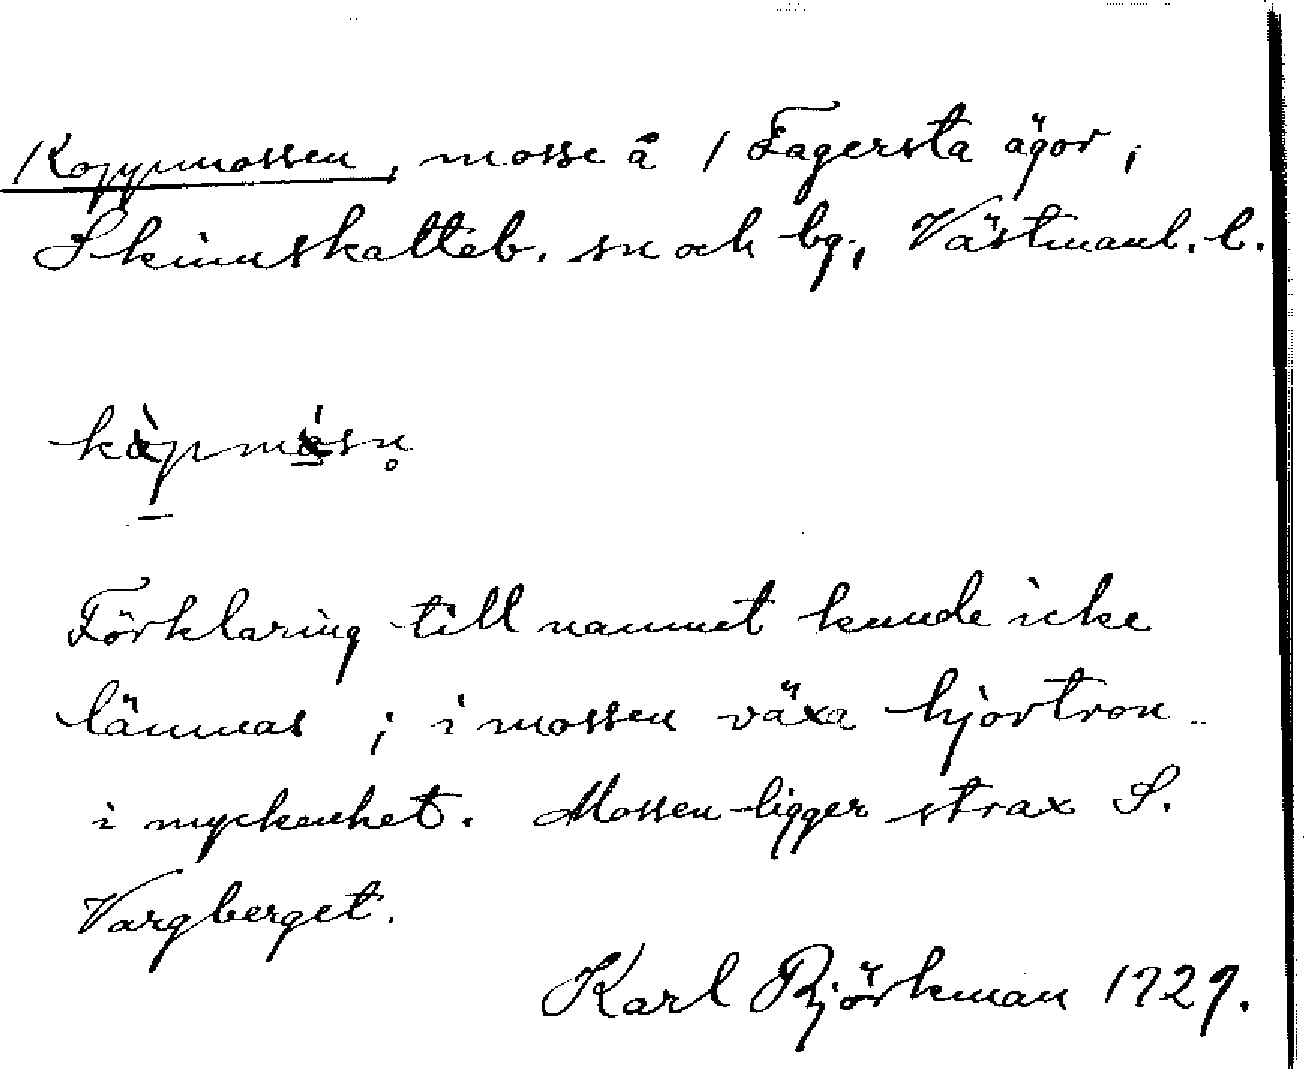 Koppmossen, mosse å 1 Fagersta ägor,
Skinnskatteb. sn och bg., Västmanl. l.
kòpmósn̥
Förklaring till namnet kunde icke
lämnas ; i mossen växa hjortron
i myckenhet. Mossen ligger strax S.
Vargberget.
Karl Björkman 1929.